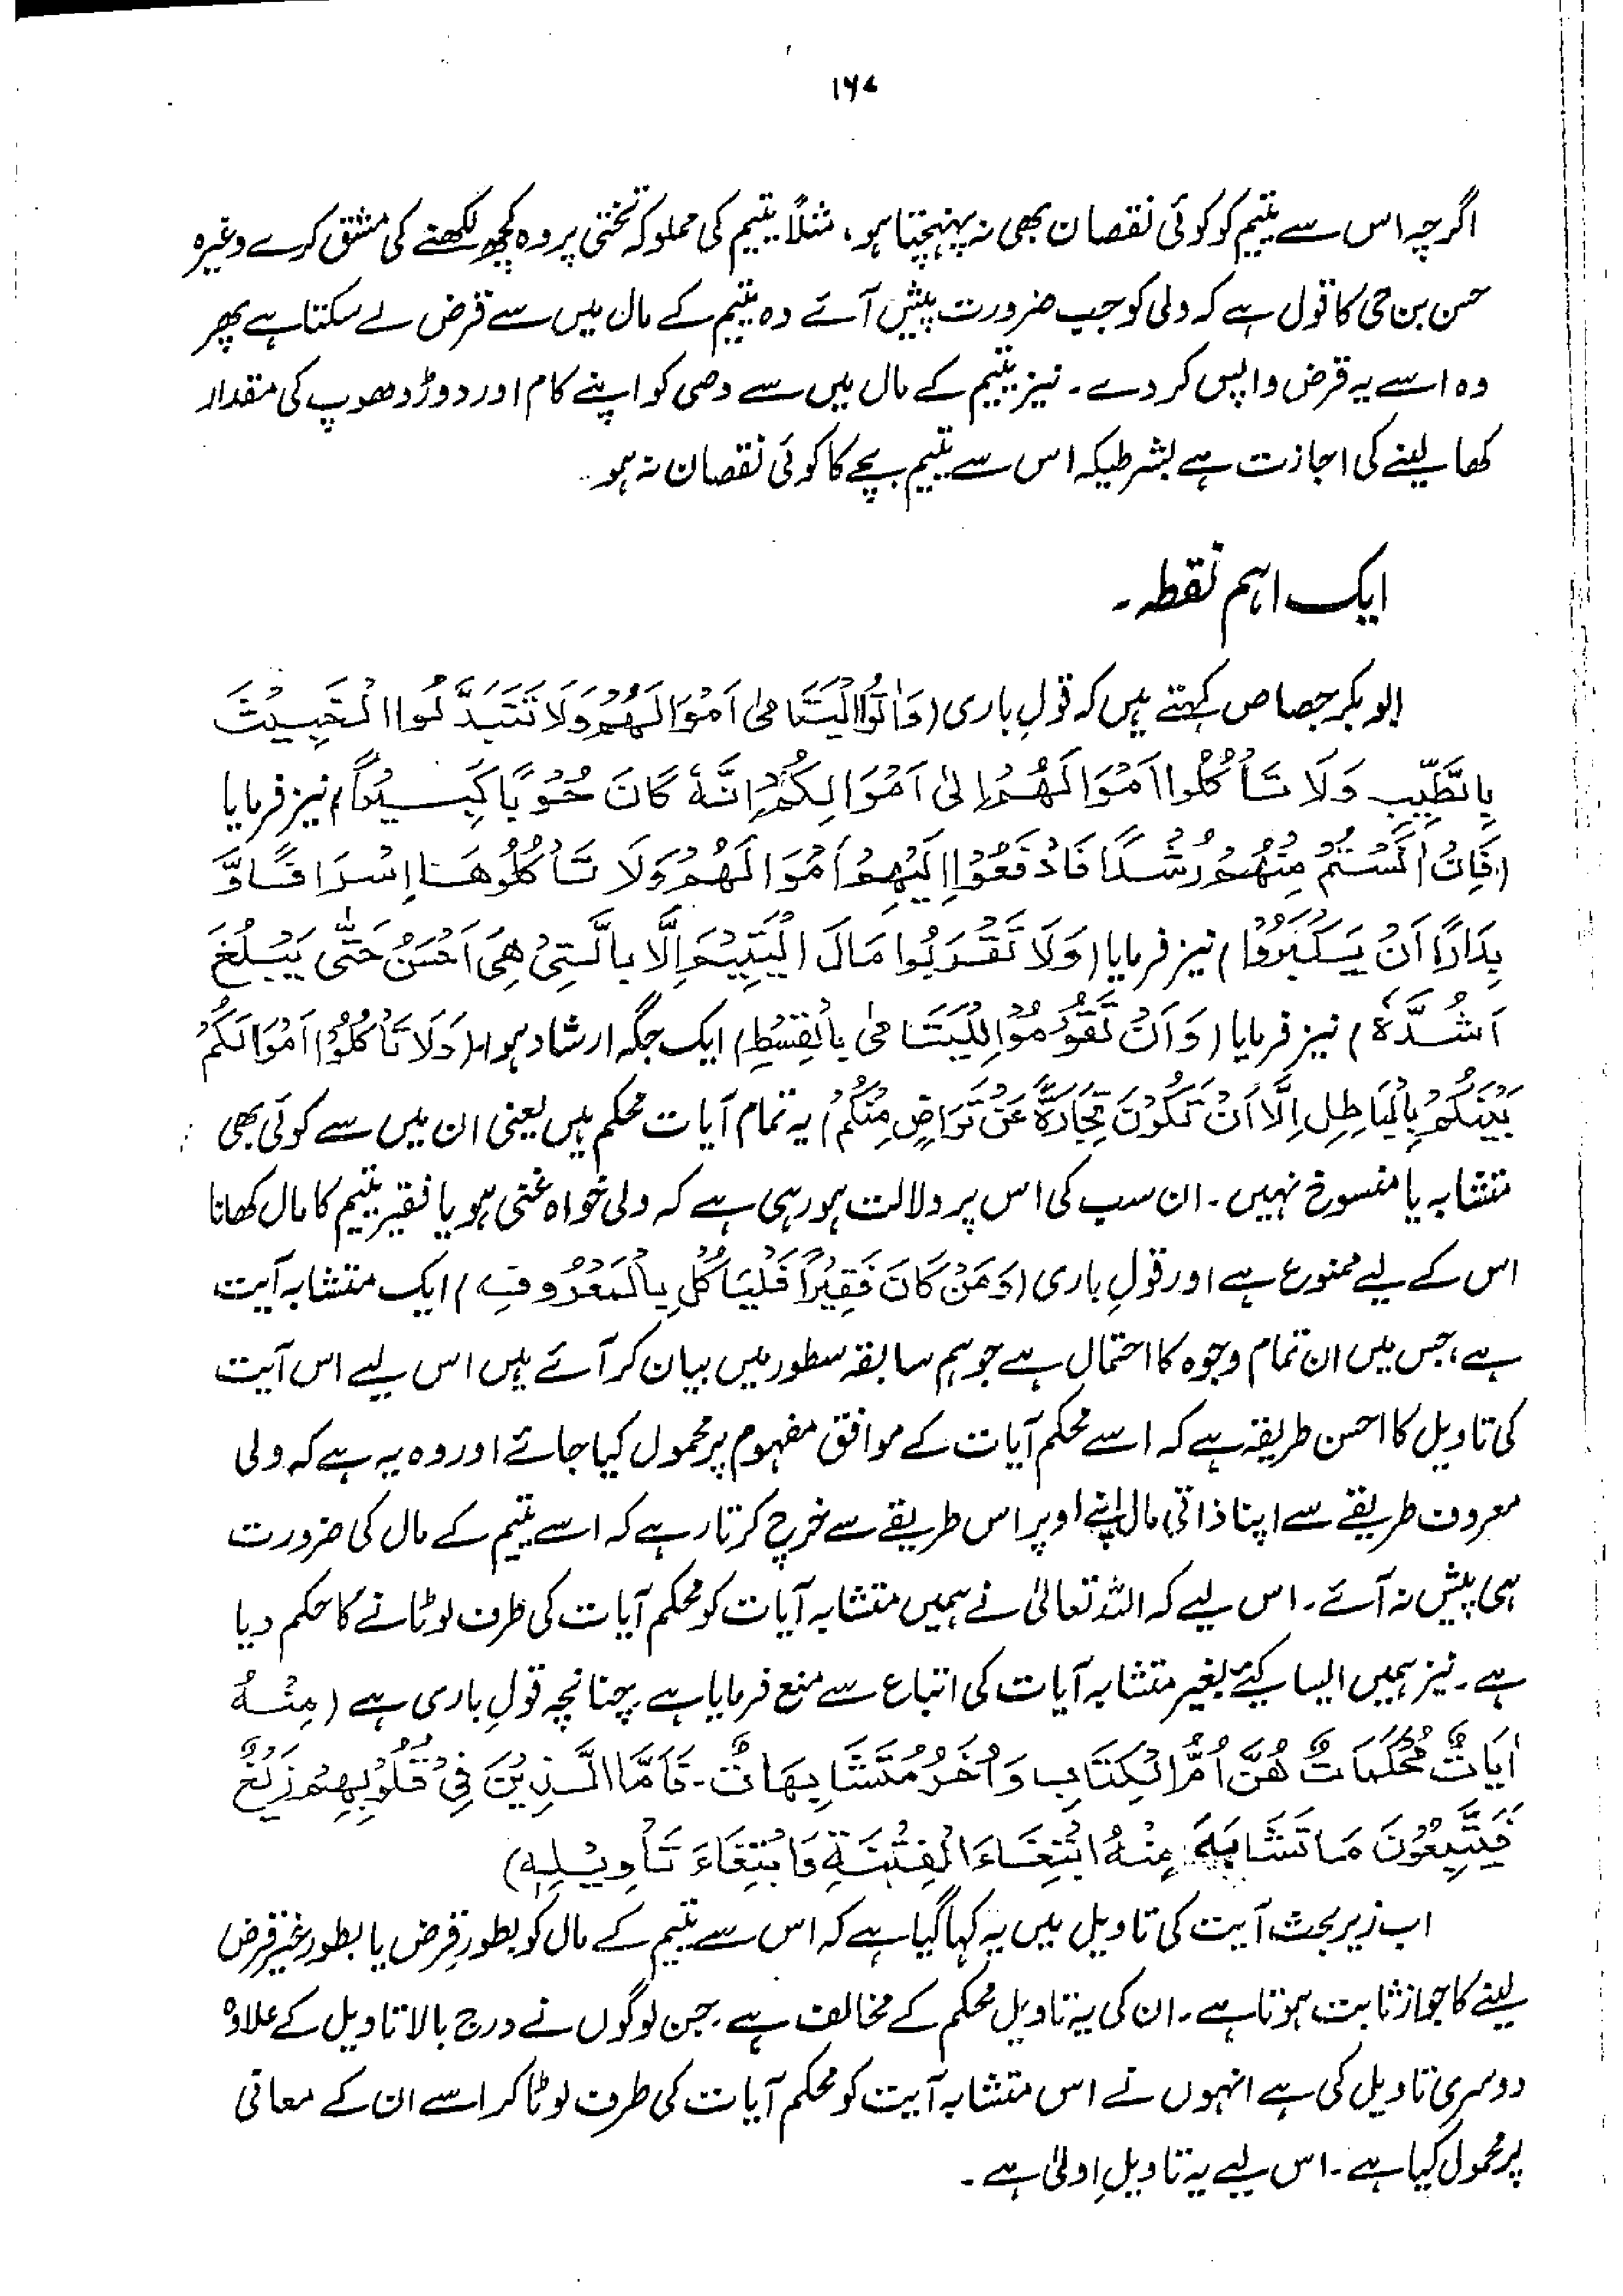 ۱۶۷
اگرچہ اس سے یتیم کو کوئی نقصان بھی نہ پہنچتا ہو، مثلاً یتیم کی مملوکہ تختی پر وہ کچھ لکھنے کی مشق کرے وغیرہ
حسن بن حی کا قول ہے کہ ولی کو جب ضرورت پیش آئے وہ یتیم کے مال میں سے قرض لے سکتا ہے پھر
وہ اسے یہ قرض واپس کر دے۔ نیز یتیم کے مال میں سے وصی کو اپنے کام اور دوڑ دھوپ کی مقدار
کھا لینے کی اجازت ہے بشرطیکہ اس سے یتیم بچے کا کوئی نقصان نہ ہو۔
ایک اہم نقطہ۔
ابوبکر جصاص کہتے ہیں کہ قولِ باری (وَاٰتُوا الْیَتَامٰی اَمْوَالَھُمْ وَلَا تَتَبَدَّلُوا الْخَبِیْثَ
بِالطَّیِّبِ وَلَا تَأْکُلُوا اَمْوَالَھُمْ اِلٰی اَمْوَالِکُمْ اِنَّہٗ کَانَ حُوْبًا کَبِیْرًا) نیز فرمایا
(فَاِنْ اٰنَسْتُمْ مِنْھُمْ رُشْدًا فَادْفَعُوْا اِلَیْھِمْ اَمْوَالَھُمْ وَلَا تَأْکُلُوْھَا اِسْرَافًا وَّ
بِدَارًا اَنْ یَکْبَرُوْا) نیز فرمایا (وَلَا تَقْرَبُوا مَالَ الْیَتِیْمِ اِلَّا بِالَّتِیْ ھِیَ اَحْسَنُ حَتّٰی یَبْلُغَ
اَشُدَّہٗ) نیز فرمایا (وَاَنْ تَقُوْمُوْا لِلْیَتَامٰی بِالْقِسْطِ) ایک جگہ ارشاد ہوا (وَلَا تَأْکُلُوْا اَمْوَالَکُمْ
بَیْنَکُمْ بِالْبَاطِلِ اِلَّا اَنْ تَکُوْنَ تِجَارَۃً عَنْ تَرَاضٍ مِنْکُمْ) یہ تمام آیات محکم ہیں یعنی ان میں سے کوئی بھی
متشابہ یا منسوخ نہیں۔ ان سب کی اس پر دلالت ہو رہی ہے کہ ولی خواہ غنی ہو یا فقیر یتیم کا مال کھانا
اس کے لیے ممنوع ہے اور قولِ باری (وَمَنْ کَانَ فَقِیْرًا فَلْیَأْکُلْ بِالْمَعْرُوْفِ) ایک متشابہ آیت
ہے، جس میں ان تمام وجوہ کا احتمال ہے جو ہم سابقہ سطور میں بیان کر آئے ہیں اس لیے اس آیت
کی تاویل کا احسن طریقہ ہے کہ اسے محکم آیات کے موافق مفہوم پر محمول کیا جائے اور وہ یہ ہے کہ ولی
معروف طریقے سے اپنا ذاتی مال اپنے اوپر اس طریقے سے خرچ کرتا رہے کہ اسے یتیم کے مال کی ضرورت
ہی پیش نہ آئے۔ اس لیے کہ اللہ تعالیٰ نے ہمیں متشابہ آیات کو محکم آیات کی طرف لوٹانے کا حکم دیا
ہے۔ نیز ہمیں ایسا کیئے بغیر متشابہ آیات کی اتباع سے منع فرمایا ہے۔ چنانچہ قولِ باری ہے (مِنْہُ
اٰیَاتٌ مُحْکَمَاتٌ ھُنَّ اُمُّ الْکِتَابِ وَاُخَرُ مُتَشَابِھَاتٌ۔ فَاَمَّا الَّذِیْنَ فِیْ قُلُوْبِھِمْ زَیْغٌ
فَیَتَّبِعُوْنَ مَا تَشَابَہَ مِنْہُ ابْتِغَاءَ الْفِتْنَۃِ وَابْتِغَاءَ تَأْوِیْلِہٖ)
اب زیر بحث آیت کی تاویل میں یہ کہا گیا ہے کہ اس سے یتیم کے مال کو بطور قرض یا بطور غیر قرض
لینے کا جواز ثابت ہوتا ہے۔ ان کی یہ تاویل محکم کے مخالف ہے۔ جن لوگوں نے درج بالا تاویل کے علاوہ
دوسری تاویل کی ہے انہوں نے اس متشابہ آیت کو محکم آیات کی طرف لوٹا کر اسے ان کے معانی
پر محمول کیا ہے۔ اس لیے یہ تاویلِ اولیٰ ہے۔